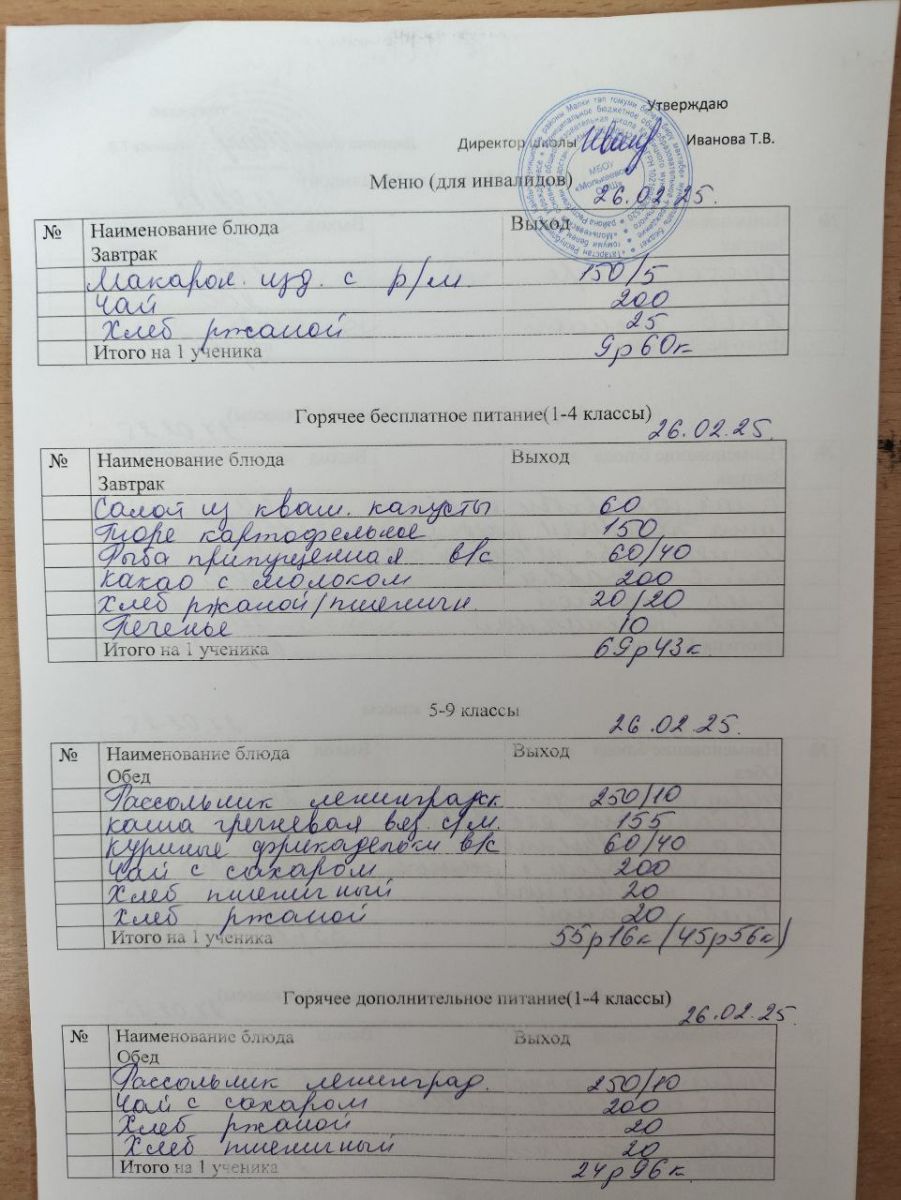 Утверждаю
Директор школы Иванова Т.В.
МБОУ
Меню (для инвалидов)
26.02.25.
№ Наименование блюда Выход
Завтрак
Макарон. изд. с р/м 150/5
Чай 200
Хлеб ржаной 25
Итого на 1 ученика 9р60к
Горячее бесплатное питание(1-4 классы)
26.02.25.
№ Наименование блюда Выход
Завтрак
Салат из кваш. капусты 60
Пюре картофельное 150
Рыба припущенная в/с 60/40
Какао с молоком 200
Хлеб ржаной/пшеничн. 20/20
Печенье 10
Итого на 1 ученика 69р43к.
5-9 классы
26.02.25.
№ Наименование блюда Выход
Обед
Рассольник ленинградск 250/10
каша гречневая вяз. с/м. 155
куриные фрикадельки в/с 60/40
Чай с сахаром 200
Хлеб пшеничный 20
Хлеб ржаной 20
Итого на 1 ученика 55р16к (45р56к)
Горячее дополнительное питание(1-4 классы)
26.02.25.
№ Наименование блюда Выход
Обед
Рассольник ленинград. 250/10
Чай с сахаром 200
Хлеб ржаной 20
Хлеб пшеничный 20
Итого на 1 ученика 24р96к.